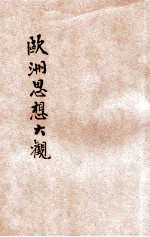 歐洲思想大觀